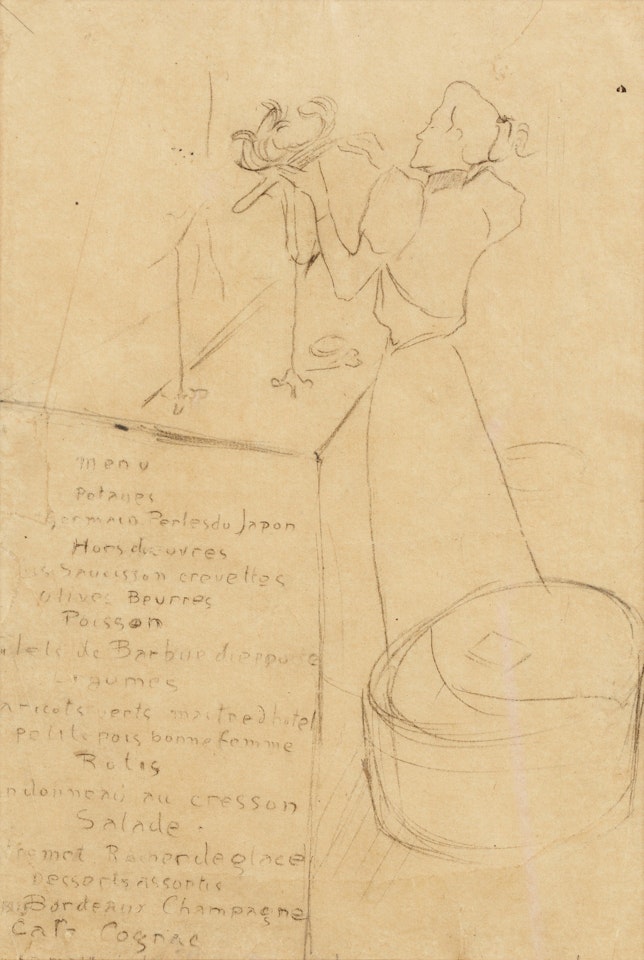 menu
Potages
Germain Perles du Japon
Hors d'œuvres
Saucisson crevettes
olives Beurres
Poisson
de Barbue dieppoise
Legumes
aricots verts maitre d hotel
petits pois bonne femme
Rotis
ndonneau au cresson
Salade
Rocher de glace
Desserts assortis
Bordeaux Champagne
Café Cognac